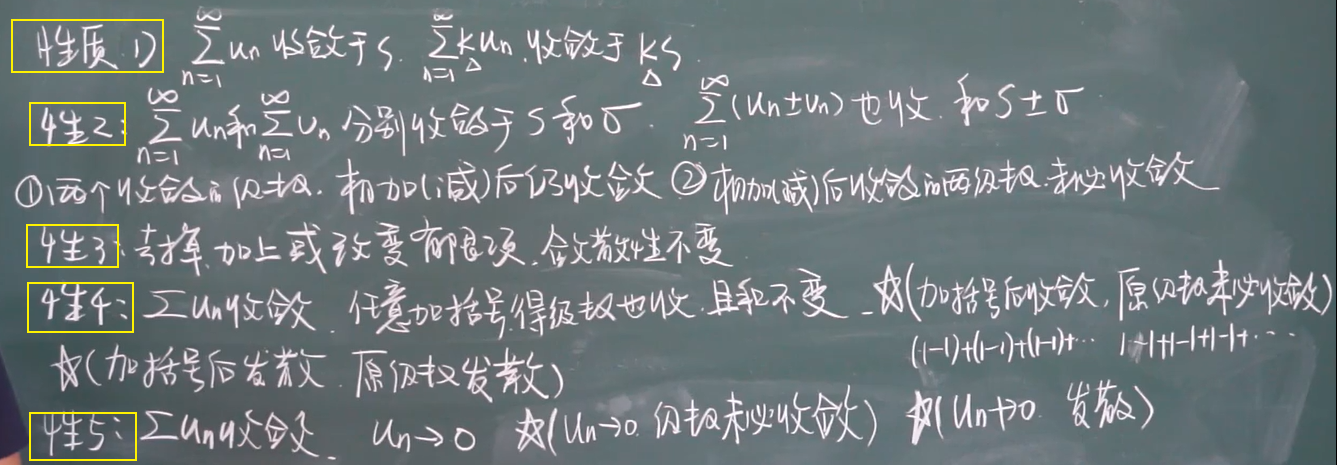 性质.1) ∑_{n=1}^{∞} uₙ 收敛于 S. ∑_{n=1}^{∞} kuₙ. 收敛于 kS
性2: ∑_{n=1}^{∞} uₙ 和 ∑_{n=1}^{∞} vₙ 分别收敛于 S 和 σ. ∑_{n=1}^{∞} (uₙ±vₙ) 也收. 和 S±σ
①两个收敛的级数. 相加(减)后仍收敛 ②相加(减)后收敛的两级数.未必收敛
性3: 去掉.加上或改变有限项.敛散性不变
性4: ∑uₙ收敛. 任意加括号.得级数也收.且和不变 ☆(加括号后收敛,原级数未必收敛)
(1-1)+(1-1)+(1-1)+… 1-1+1-1+1-1+…
☆(加括号后发散.原级数发散)
性5: ∑uₙ收敛. uₙ→0 ☆(uₙ→0.级数未必收敛) ☆(uₙ↛0. 发散)